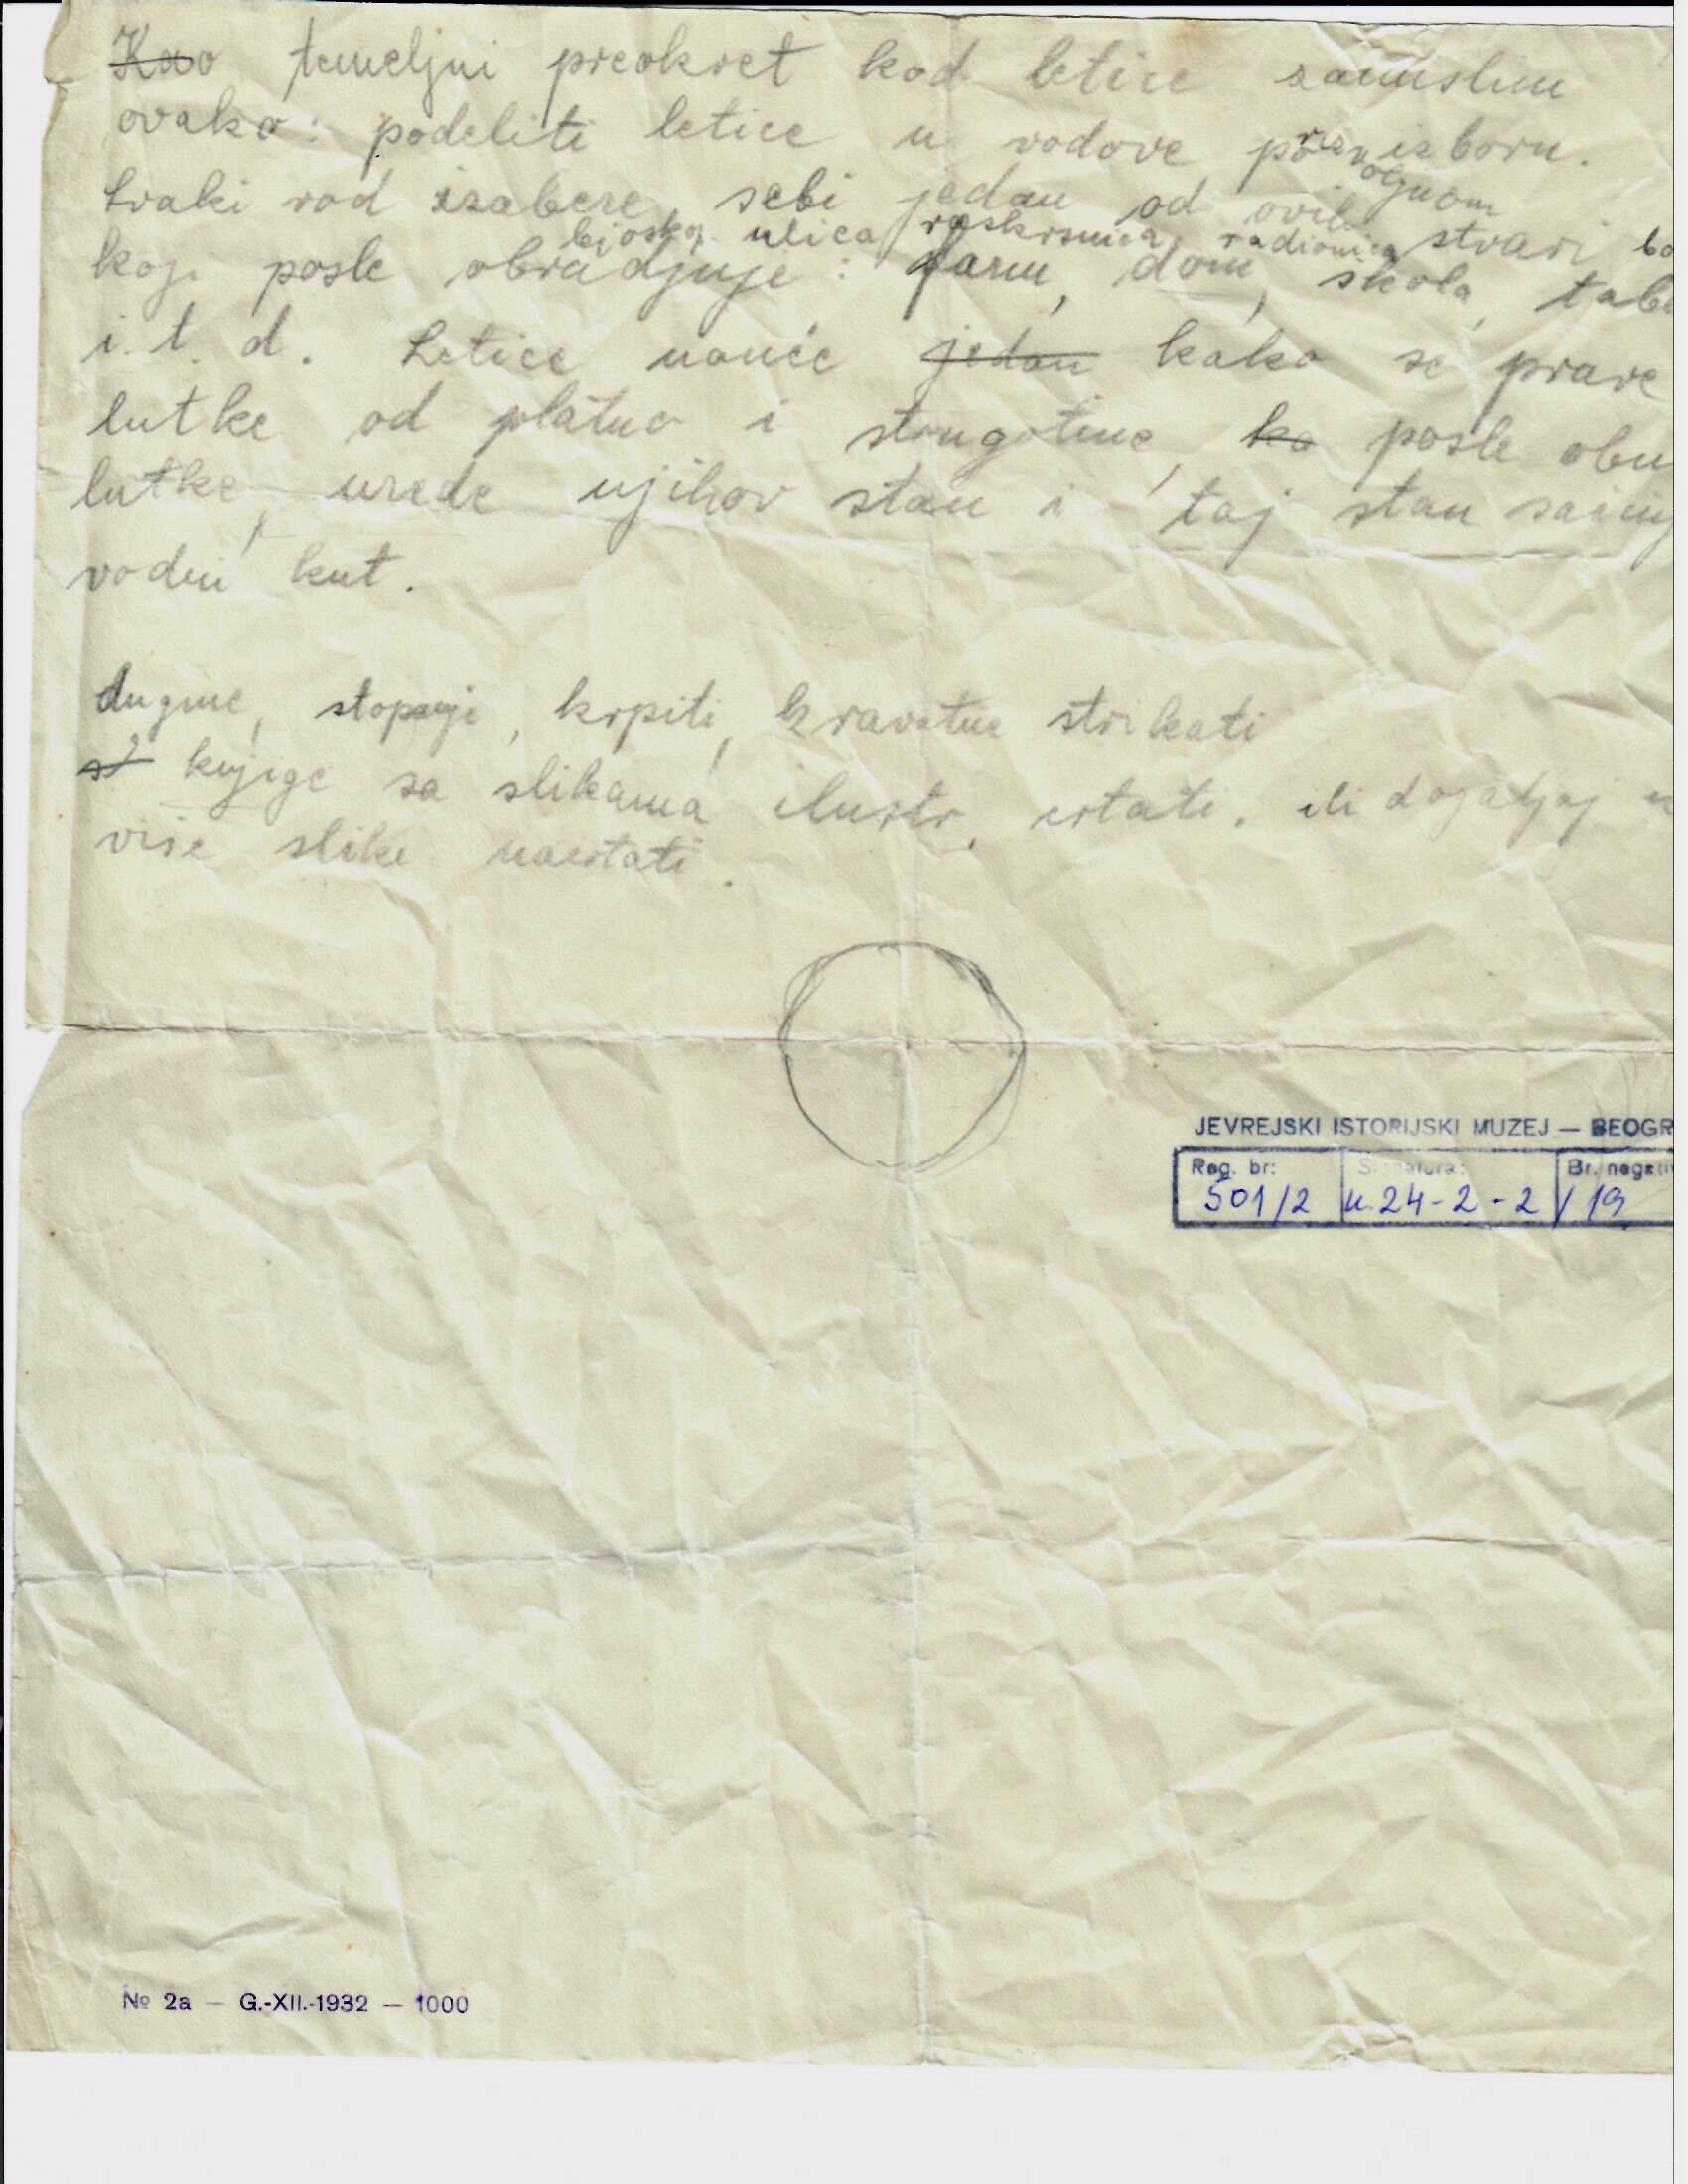 Kao temeljni preokret kod letice zamislim
ovako: podeliti letice u vodove po izboru.
svojevoljnom
Svaki vod izabere sebi jedan od ovih stvari
bioskop. ulica raskrsnica, radionica
koji posle obradjuje: farm, dom, skola,
i. t. d. Letice nauče jedan kako se prave
lutke od platna i strugotine, ko posle
lutke, urede njihov stan i taj stan
vodni kut.
dugme, stopanje, krpiti, kravatne strikati
st knjige sa slikama ilustr. crtati. ili dogadjaj
vise slike nacrtati.
JEVREJSKI ISTORIJSKI MUZEJ — BEOGR
Reg. br: Signatura: Br. negativ
501/2 k. 24-2-2/19
№ 2a — G.-XII.-1932 — 1000